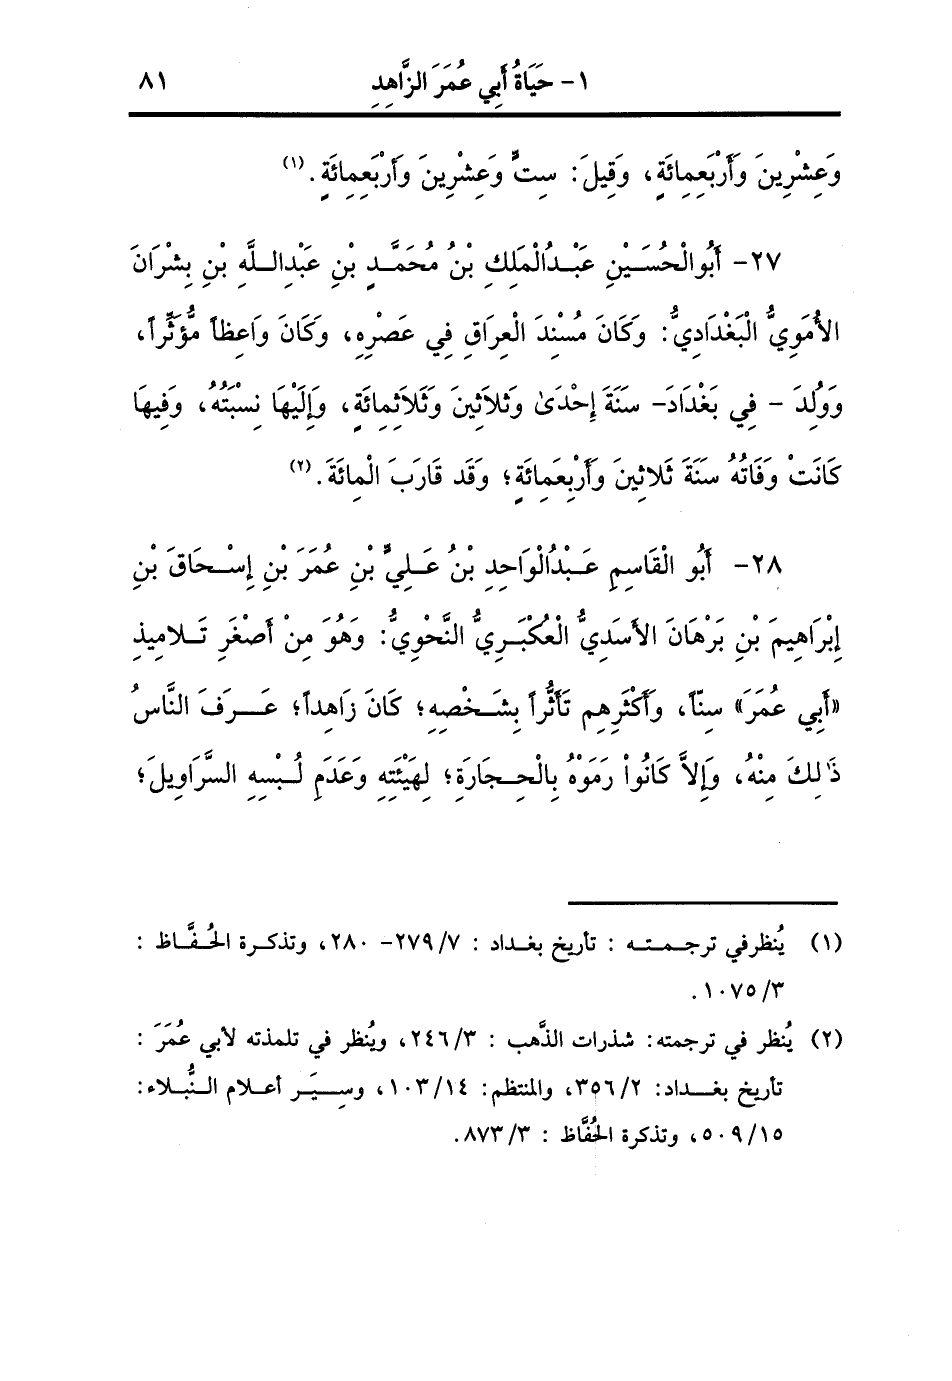 ١- حَيَاةُ أَبِي عُمَرَ الزَّاهِدِ ٨١
وَعِشْرِينَ وَأَرْبَعِمِائَةٍ، وَقِيلَ: سِتٌّ وَعِشْرِينَ وَأَرْبَعِمِائَةٍ. (١)
٢٧- أَبُو الْحُسَيْنِ عَبْدُالْمَلِكِ بْنُ مُحَمَّدِ بْنِ عَبْدِاللَّهِ بْنِ بِشْرَانَ
الأُمَوِيُّ الْبَغْدَادِيُّ: وَكَانَ مُسْنِدَ الْعِرَاقِ فِي عَصْرِهِ، وَكَانَ وَاعِظاً مُؤَثِّراً،
وَوُلِدَ - فِي بَغْدَادَ- سَنَةَ إِحْدَىٰ وَثَلاثِينَ وَثَلاثِمِائَةٍ، وَإِلَيْهَا نِسْبَتُهُ، وَفِيهَا
كَانَتْ وَفَاتُهُ سَنَةَ ثَلاثِينَ وَأَرْبَعِمَائَةٍ؛ وَقَد قَارَبَ الْمِائَةَ. (٢)
٢٨- أَبُو الْقَاسِمِ عَبْدُالْوَاحِدِ بْنُ عَلِيِّ بْنِ عُمَرَ بْنِ إِسْحَاقَ بْنِ
إِبْرَاهِيمَ بْنِ بَرْهَانَ الأَسَدِيُّ الْعُكْبَرِيُّ النَّحْوِيُّ: وَهُوَ مِنْ أَصْغَرِ تَلامِيذِ
«أَبِي عُمَرَ» سِنّاً، وَأَكْثَرِهِم تَأَثُّراً بِشَخْصِهِ؛ كَانَ زَاهِداً؛ عَرَفَ النَّاسُ
ذَٰلِكَ مِنْهُ، وَإِلاَّ كَانُواْ رَمَوْهُ بِالْحِجَارَةِ؛ لِهَيْئَتِهِ وَعَدَمِ لُبْسِهِ السَّرَاوِيلَ؛
(١) يُنظرفي ترجمته : تأريخ بغداد : ٢٧٩/٧- ٢٨٠، وتذكرة الحُفَّاظ :
١٠٧٥/٣.
(٢) يُنظر في ترجمته: شذرات الذَّهب : ٢٤٦/٣، ويُنظر في تلمذته لأبي عُمَرَ :
تأريخ بغداد: ٣٥٦/٢، والمنتظم: ١٠٣/١٤، وسِيَر أعلام النُّبلاء:
٥٠٩/١٥، وتذكرة الحُفَّاظ : ٨٧٣/٣.